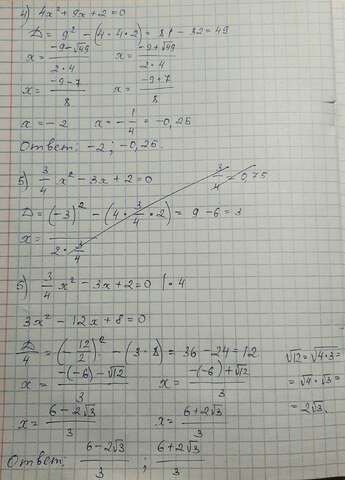 4) 4x² + 9x + 2 = 0
D = 9² - (4·4·2) = 81 - 32 = 49
x = (-9-√49)/(2·4) x = (-9+√49)/(2·4)
x = (-9-7)/8 x = (-9+7)/8
x = -2 x = -1/4 = -0,25
Ответ: -2; -0,25.
5) 3/4 x² - 3x + 2 = 0 3/4 = 0,75
D = (-3)² - (4·3/4·2) = 9 - 6 = 3
x = /(2·3/4)
5) 3/4 x² - 3x + 2 = 0 |·4
3x² - 12x + 8 = 0
D/4 = (-12/2)² - (3·8) = 36 - 24 = 12 √12 = √4·3 =
x = (-(-6)-√12)/3 x = (-(-6)+√12)/3 = √4·√3 =
x = (6-2√3)/3 x = (6+2√3)/3 = 2√3.
Ответ: (6-2√3)/3 ; (6+2√3)/3